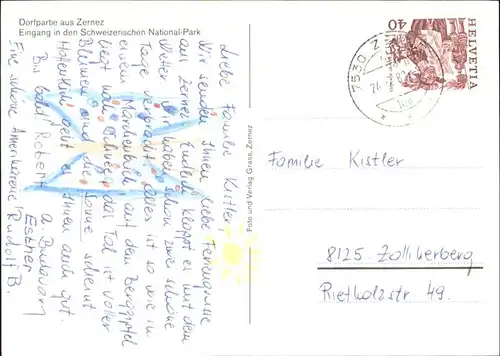 Dorfpartie aus Zernez
Eingang in den Schweizerischen National-Park
Liebe Familie Kistler
Wir senden Ihnen liebe Feriengrüsse
aus Zernez. Endlich klappt es mit dem
Wetter. Wir haben schon zwei schöne
Tage verbracht. Hier ist es so wie in
einem Märchenbuch: auf dem Berggipfel
liegt noch Schnee, der Tal ist voller
Blumen und die Sonne scheint.
Hoffentlich geht es Ihnen auch gut.
Bis bald, Robert
Escher
Eine schöne Amerikareise! Rudolf B.
Foto und Verlag Grass, Zernez
7530 Z
HELVETIA
40
Familie Kistler
8125 Zollikerberg
Rietholzstr 49.